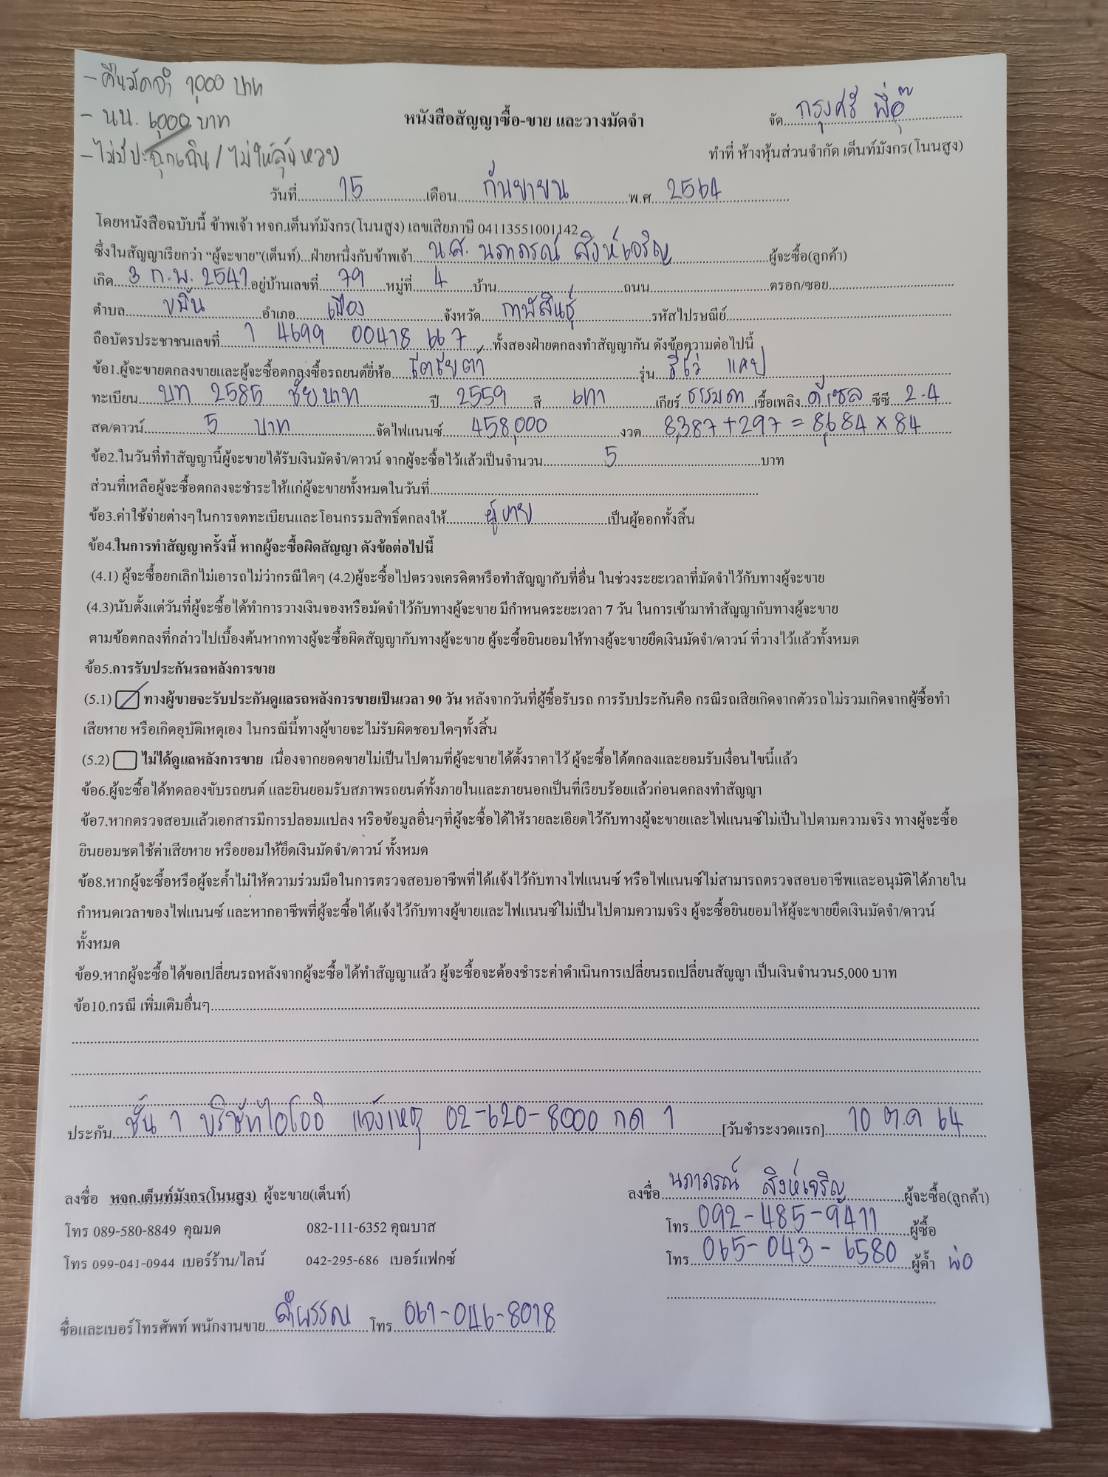 - คืนมัดจำ 1,000 บาท
- นน. 6,000 บาท
- ไม่มีปะฉุกเฉิน / ไม่ให้ลุ้นหวย
จัด กรุงศรี พี่อู๊
หนังสือสัญญาซื้อ-ขาย และวางมัดจำ
ทำที่ ห้างหุ้นส่วนจำกัด เต็นท์มังกร(โนนสูง)
วันที่ 15 เดือน กันยายน พ.ศ. 2564
โดยหนังสือฉบับนี้ ข้าพเจ้า หจก.เต็นท์มังกร(โนนสูง) เลขเสียภาษี 04113551001142
ซึ่งในสัญญาเรียกว่า "ผู้จะขาย"(เต็นท์)...ฝ่ายหนึ่งกับข้าพเจ้า น.ส. นภาภรณ์ สิงห์เจริญ ผู้จะซื้อ(ลูกค้า)
เกิด 3 ก.พ. 2547 อยู่บ้านเลขที่ 79 หมู่ที่ 4 บ้าน ถนน ตรอก/ซอย
ตำบล ขมิ้น อำเภอ เมือง จังหวัด กาฬสินธุ์ รหัสไปรษณีย์
ถือบัตรประชาชนเลขที่ 1 4699 00418 66 7 ทั้งสองฝ่ายตกลงทำสัญญากัน ดังข้อความต่อไปนี้
ข้อ1.ผู้จะขายตกลงขายและผู้จะซื้อตกลงซื้อรถยนต์ยี่ห้อ โตโยต้า รุ่น รีโว่ แคป
ทะเบียน บท 2585 ชัยนาท ปี 2559 สี เทา เกียร์ ธรรมดา เชื้อเพลิง ดีเซล ซีซี 2.4
สด/ดาวน์ 5 บาท จัดไฟแนนซ์ 458,000 งวด 8,387+297 = 8,684 x 84
ข้อ2.ในวันที่ทำสัญญานี้ผู้จะขายได้รับเงินมัดจำ/ดาวน์ จากผู้จะซื้อไว้แล้วเป็นจำนวน 5 บาท
ส่วนที่เหลือผู้จะซื้อตกลงจะชำระให้แก่ผู้จะขายทั้งหมดในวันที่
ข้อ3.ค่าใช้จ่ายต่างๆในการจดทะเบียนและโอนกรรมสิทธิ์ตกลงให้ ผู้ขาย เป็นผู้ออกทั้งสิ้น
ข้อ4.ในการทำสัญญาครั้งนี้ หากผู้จะซื้อผิดสัญญา ดังข้อต่อไปนี้
(4.1) ผู้จะซื้อยกเลิกไม่เอารถไม่ว่ากรณีใดๆ (4.2)ผู้จะซื้อไปตรวจเครดิตหรือทำสัญญากับที่อื่น ในช่วงระยะเวลาที่มัดจำไว้กับทางผู้จะขาย
(4.3)นับตั้งแต่วันที่ผู้จะซื้อได้ทำการวางเงินจองหรือมัดจำไว้กับทางผู้จะขาย มีกำหนดระยะเวลา 7 วัน ในการเข้ามาทำสัญญากับทางผู้จะขาย
ตามข้อตกลงที่กล่าวไปเบื้องต้นหากทางผู้จะซื้อผิดสัญญากับทางผู้จะขาย ผู้จะซื้อยินยอมให้ทางผู้จะขายยึดเงินมัดจำ/ดาวน์ ที่วางไว้แล้วทั้งหมด
ข้อ5.การรับประกันรถหลังการขาย
(5.1) ทางผู้ขายจะรับประกันดูแลรถหลังการขายเป็นเวลา 90 วัน หลังจากวันที่ผู้ซื้อรับรถ การรับประกันคือ กรณีรถเสียเกิดจากตัวรถไม่รวมเกิดจากผู้ซื้อทำ
เสียหาย หรือเกิดอุบัติเหตุเอง ในกรณีนี้ทางผู้ขายจะไม่รับผิดชอบใดๆทั้งสิ้น
(5.2) ไม่ได้ดูแลหลังการขาย เนื่องจากยอดขายไม่เป็นไปตามที่ผู้จะขายได้ตั้งราคาไว้ ผู้จะซื้อได้ตกลงและยอมรับเงื่อนไขนี้แล้ว
ข้อ6.ผู้จะซื้อได้ทดลองขับรถยนต์ และยินยอมรับสภาพรถยนต์ทั้งภายในและภายนอกเป็นที่เรียบร้อยแล้วก่อนตกลงทำสัญญา
ข้อ7.หากตรวจสอบแล้วเอกสารมีการปลอมแปลง หรือข้อมูลอื่นๆที่ผู้จะซื้อได้ให้รายละเอียดไว้กับทางผู้จะขายและไฟแนนซ์ไม่เป็นไปตามความจริง ทางผู้จะซื้อ
ยินยอมชดใช้ค่าเสียหาย หรือยอมให้ยึดเงินมัดจำ/ดาวน์ ทั้งหมด
ข้อ8.หากผู้จะซื้อหรือผู้จะค้ำไม่ให้ความร่วมมือในการตรวจสอบอาชีพที่ได้แจ้งไว้กับทางไฟแนนซ์ หรือไฟแนนซ์ไม่สามารถตรวจสอบอาชีพและอนุมัติได้ภายใน
กำหนดเวลาของไฟแนนซ์ และหากอาชีพที่ผู้จะซื้อได้แจ้งไว้กับทางผู้ขายและไฟแนนซ์ไม่เป็นไปตามความจริง ผู้จะซื้อยินยอมให้ผู้จะขายยึดเงินมัดจำ/ดาวน์
ทั้งหมด
ข้อ9.หากผู้จะซื้อได้ขอเปลี่ยนรถหลังจากผู้จะซื้อได้ทำสัญญาแล้ว ผู้จะซื้อจะต้องชำระค่าดำเนินการเปลี่ยนรถเปลี่ยนสัญญา เป็นเงินจำนวน5,000 บาท
ข้อ10.กรณี เพิ่มเติมอื่นๆ
ประกัน ชั้น 1 บริษัทไอโออิ แจ้งเหตุ 02-620-8000 กด 1 [วันชำระงวดแรก] 10 ต.ค 64
ลงชื่อ หจก.เต็นท์มังกร(โนนสูง) ผู้จะขาย(เต็นท์) ลงชื่อ นภาภรณ์ สิงห์เจริญ ผู้จะซื้อ(ลูกค้า)
โทร 089-580-8849 คุณมด 082-111-6352 คุณบาส โทร 092-485-9411 ผู้ซื้อ
โทร 099-041-0944 เบอร์ร้าน/ไลน์ 042-295-686 เบอร์แฟกซ์ โทร 065-043-6580 ผู้ค้ำ พ่อ
ชื่อและเบอร์โทรศัพท์ พนักงานขาย ลำพรรณ โทร 061-046-8018